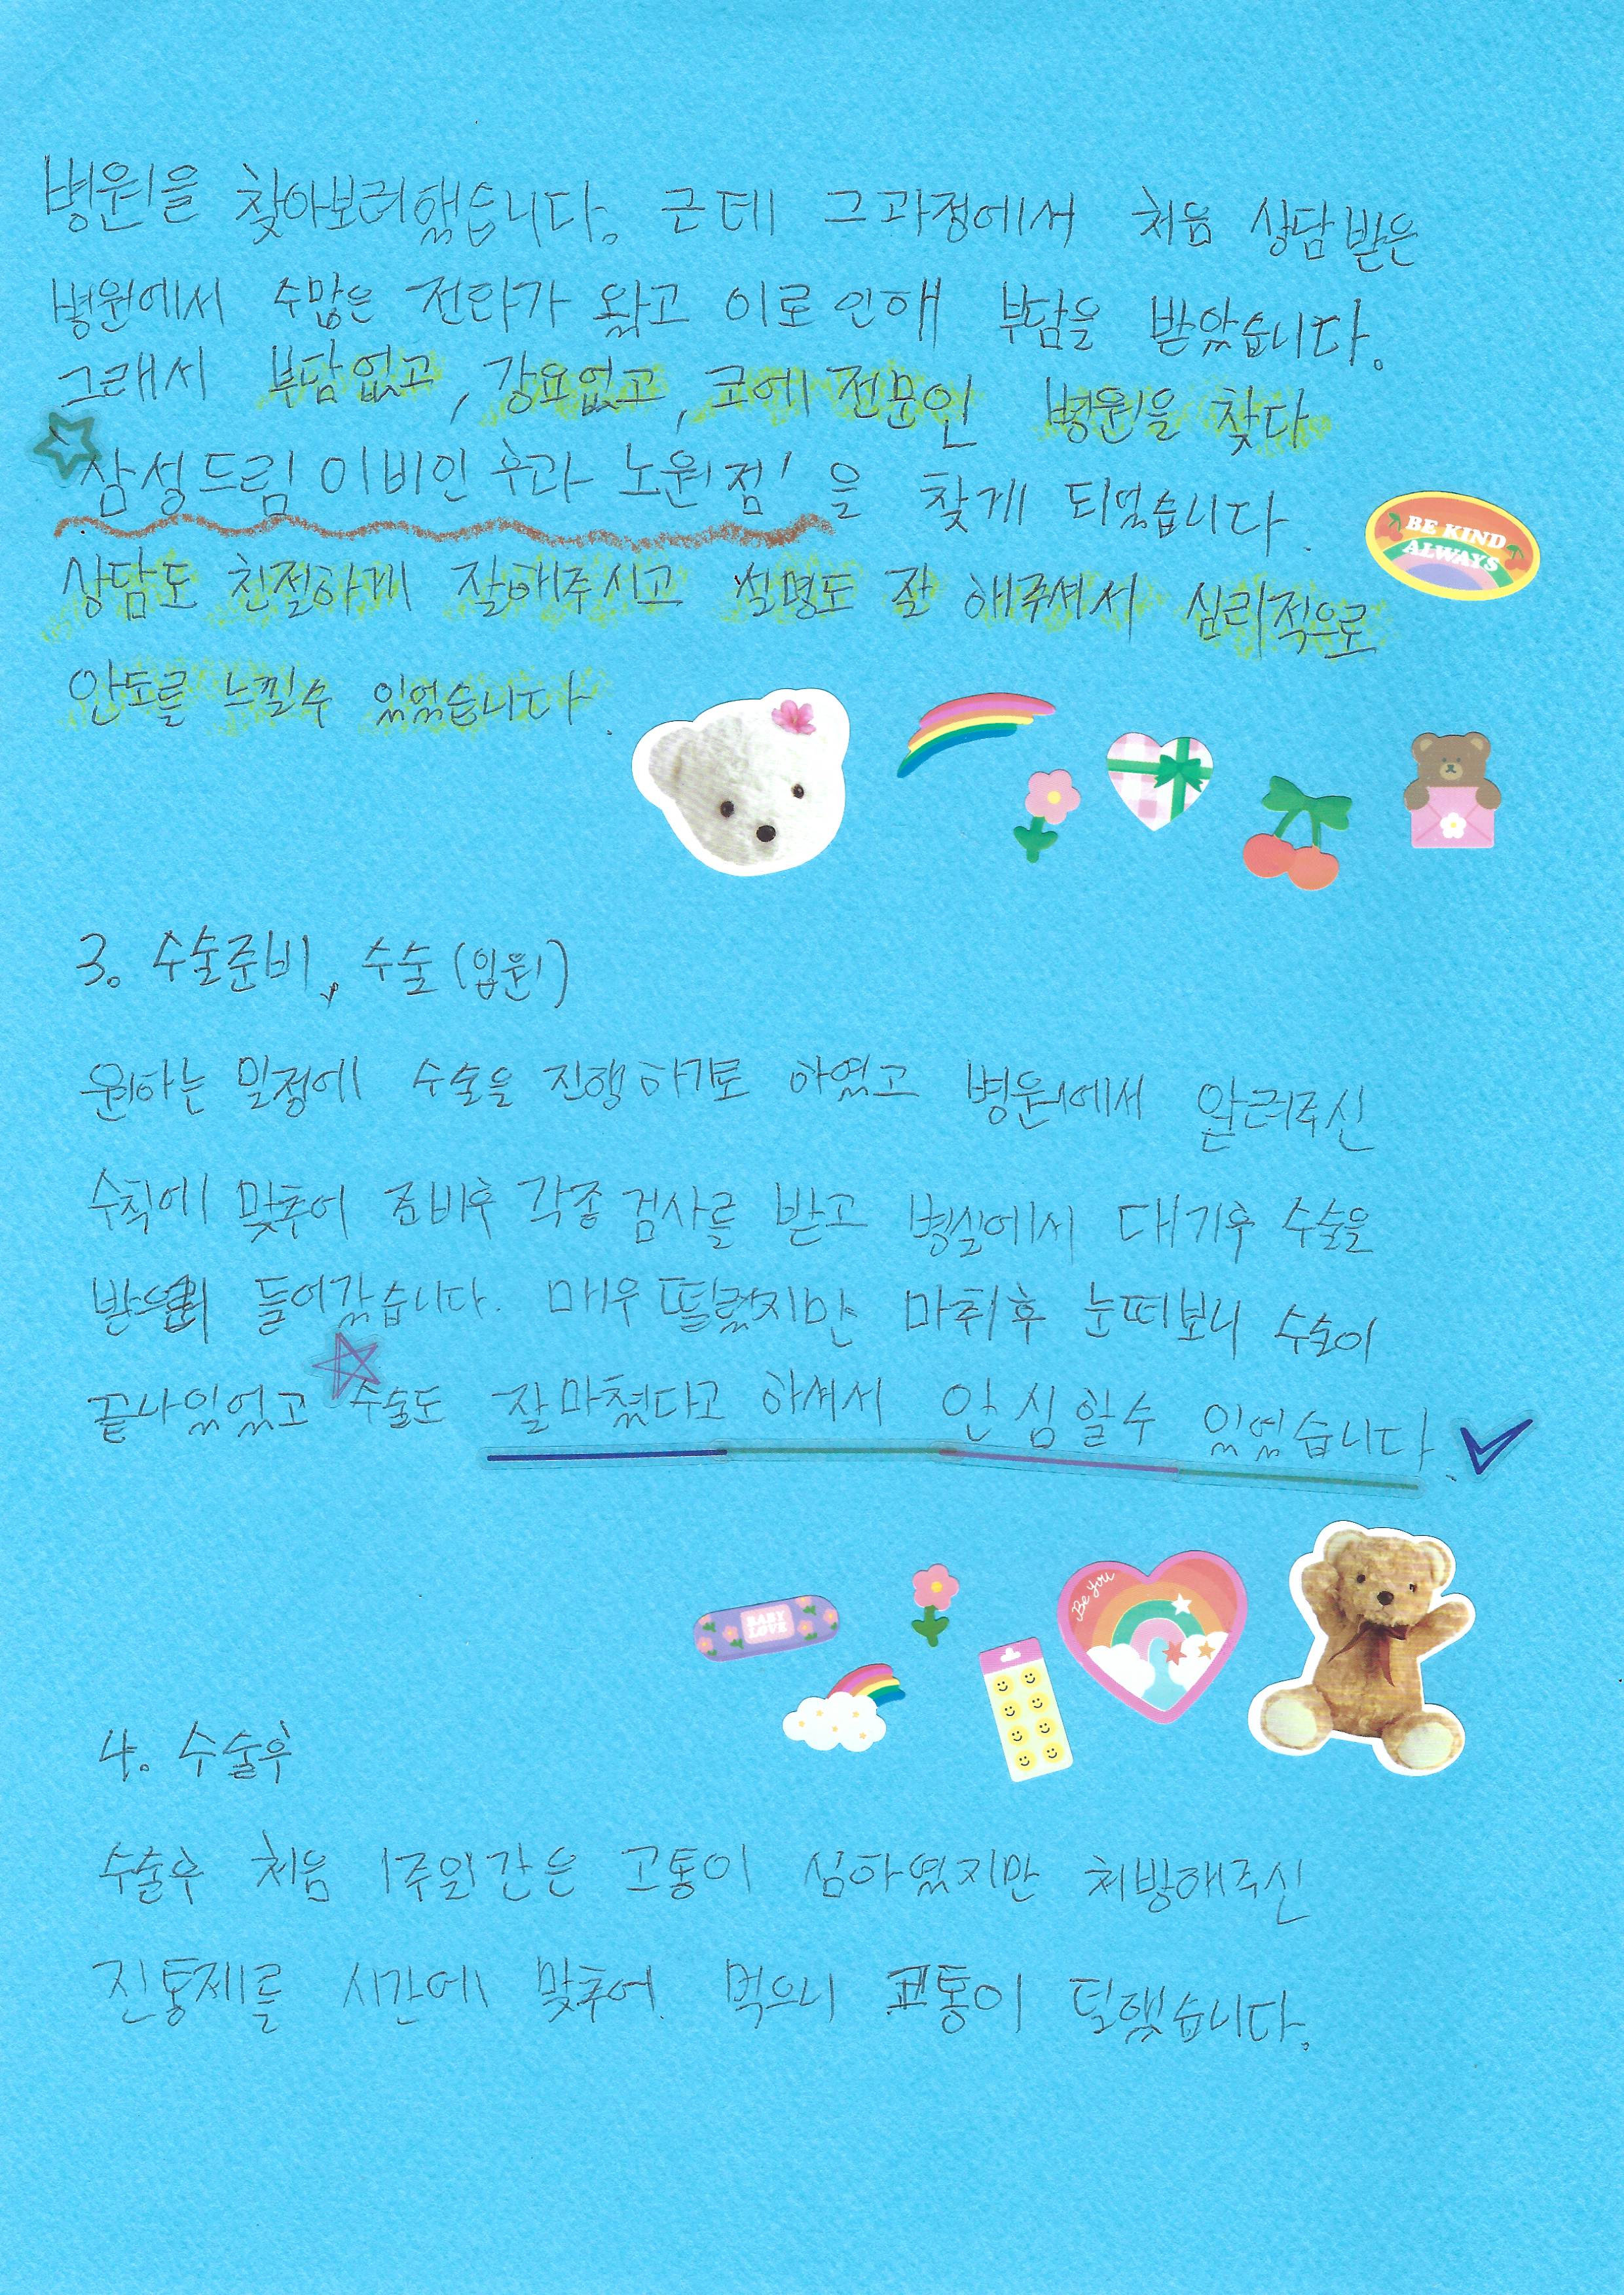 병원을 찾아보려했습니다. 근데 그과정에서 처음 상담받은
병원에서 수많은 전화가 왔고 이로인해 부담을 받았습니다.
그래서 부담없고, 강요없고, 코에 전문인 병원을 찾다
'삼성드림이비인후과 노원점'을 찾게 되었습니다.
BE KIND
ALWAYS
상담도 친절하게 잘해주시고 설명도 잘 해주셔서 심리적으로
안도를 느낄수 있었습니다.
3. 수술준비, 수술(입원)
원하는 일정에 수술을 진행하기로 하였고 병원에서 알려주신
수칙에 맞추어 준비후 각종 검사를 받고 병실에서 대기후 수술을
받으러 들어갔습니다. 매우 떨렸지만 마취후 눈떠보니 수술이
끝나있었고 수술도 잘마쳤다고 하셔서 안심할수 있었습니다.
Be You
BABY
LOVE
4. 수술후
수술후 처음 1주일간은 고통이 심하였지만 처방해주신
진통제를 시간에 맞추어 먹으니 고통이 덜했습니다.